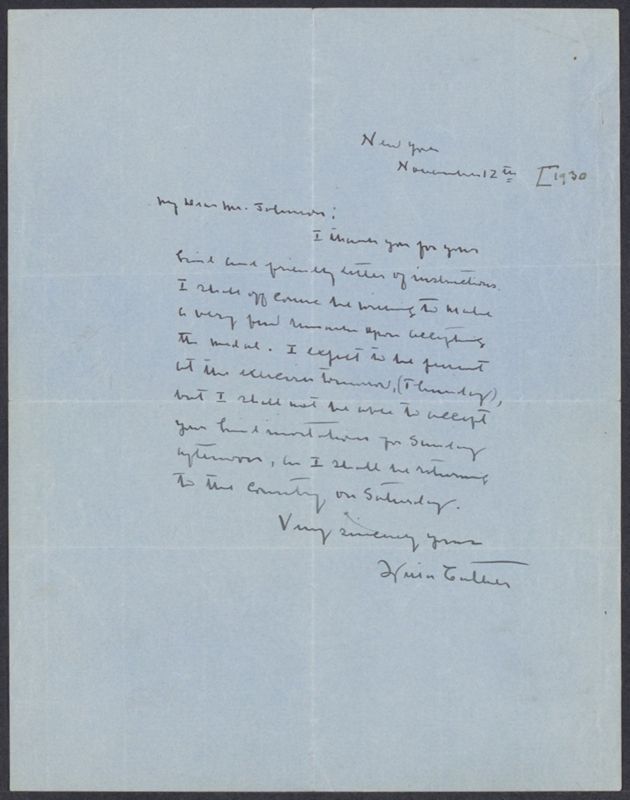 New York
November 12th [1930
My Dear Mr. Johnson:
I thank you for your
kind and friendly letter of instructions.
I shall off course be willing to make
a very few remarks upon accepting
the medal. I expect to be present
at the exercises tomorrow, (Thursday),
but I shall not be able to accept
your kind invitations for Sunday
afternoon, as I shall be returning
to the country on Saturday.
Very sincerely yours
Willa Cather